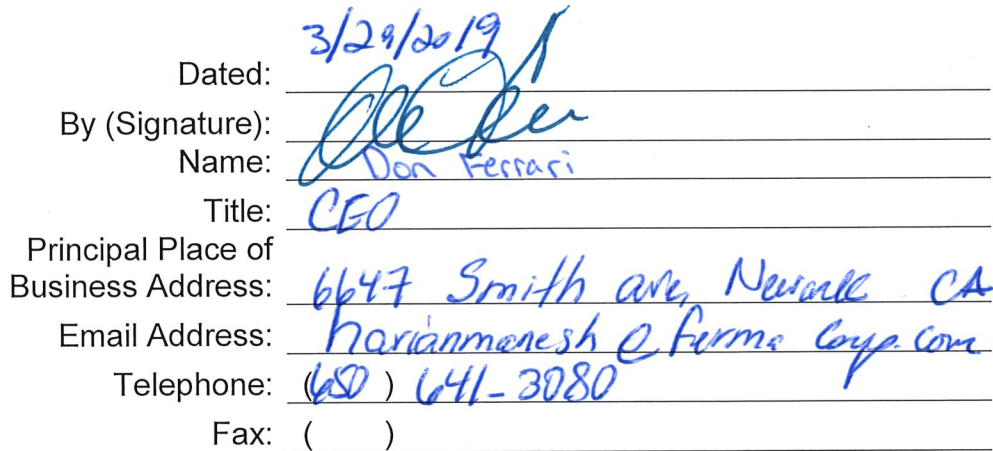 3/29/2019
Dated:
By (Signature):
Name: Don Ferrari
Title: CEO
Principal Place of
Business Address: 6647 Smith ave, Newark CA
Email Address: harianmanesh@fermacorp.com
Telephone: (650) 641-3080
Fax: ( )